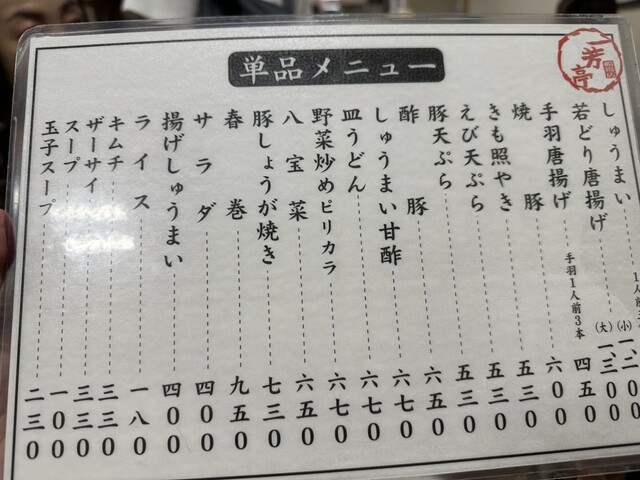 一芳亭
単品メニュー
しゅうまい 1人前
若どり唐揚げ (小) 一、二00
(大) 一、三00
手羽唐揚げ 手羽1人前3本 四五0
焼豚 六00
きも照やき 五三0
えび天ぷら 五三0
豚天ぷら 六五0
酢豚 六七0
しゅうまい甘酢 六七0
皿うどん 六七0
野菜炒めピリカラ 六七0
八宝菜 六五0
豚しょうが焼き 七三0
春巻 九五0
サラダ 四00
揚げしゅうまい 四00
ライス 一八0
キムチ 三三0
ザーサイ 三三0
スープ 一00
玉子スープ 二三0